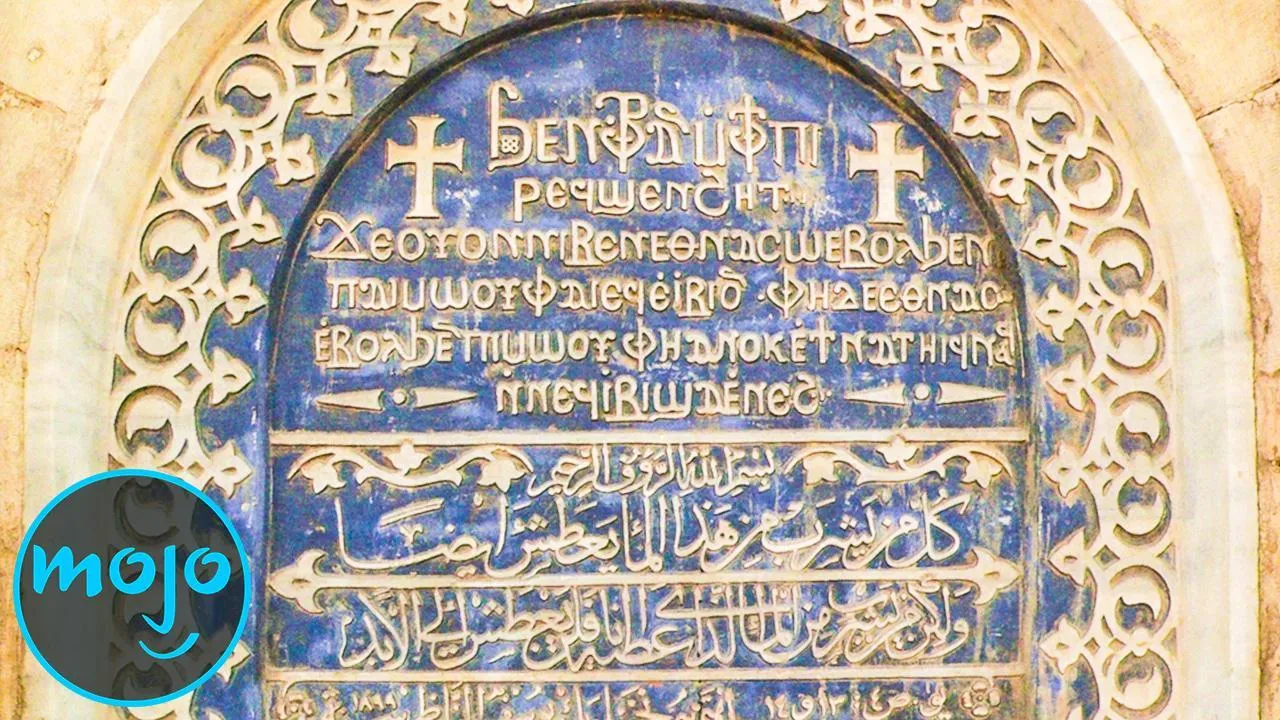 ϧⲉⲛⲫⲣⲁⲛⲙ̀ⲫϯⲡⲓ
ⲣⲉϥϣⲉⲛϩⲏⲧ
ϫⲉⲟⲩⲟⲛⲛⲓⲃⲉⲛⲉⲑⲛⲁⲥⲱⲉⲃⲟⲗϧⲉⲛ
ⲡⲁⲓⲙⲱⲟⲩⲫⲁⲓⲉϥⲉ̀ⲓⲃⲓ · ⲫⲏⲇⲉⲉⲑⲛⲁⲥ
ⲉ̀ⲃⲟⲗϧⲉⲛⲡⲓⲙⲱⲟⲩⲫⲏⲁⲛⲟⲕⲉ̀ϯⲛⲁⲧⲏⲓϥⲛⲁϥ
ⲛ̀ⲛⲉϥⲓⲃⲓϣⲁⲉ̀ⲛⲉϩ
بسم الله الرؤف الرحيم
كل من يشرب من هذا الما يعطش ايضًا
ولكن من يشرب من الما الذي اعطيه انا فلن يعطش الى الابد
mojo